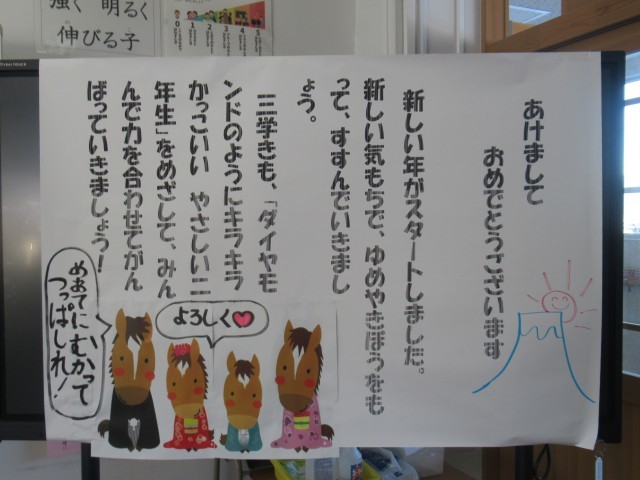 強く 明るく
伸びる子
あけまして
おめでとうございます
新しい年がスタートしました。
新しい気もちで、ゆめやきぼうをも
って、すすんでいきまし
ょう。
三学きも、「ダイヤモ
ンドのようにキラキラ
かっこいい やさしい二
年生」をめざして、みん
んで力を合わせてがん
ばっていきましょう!
よろしく
めあてにむかって
つっぱしれ!